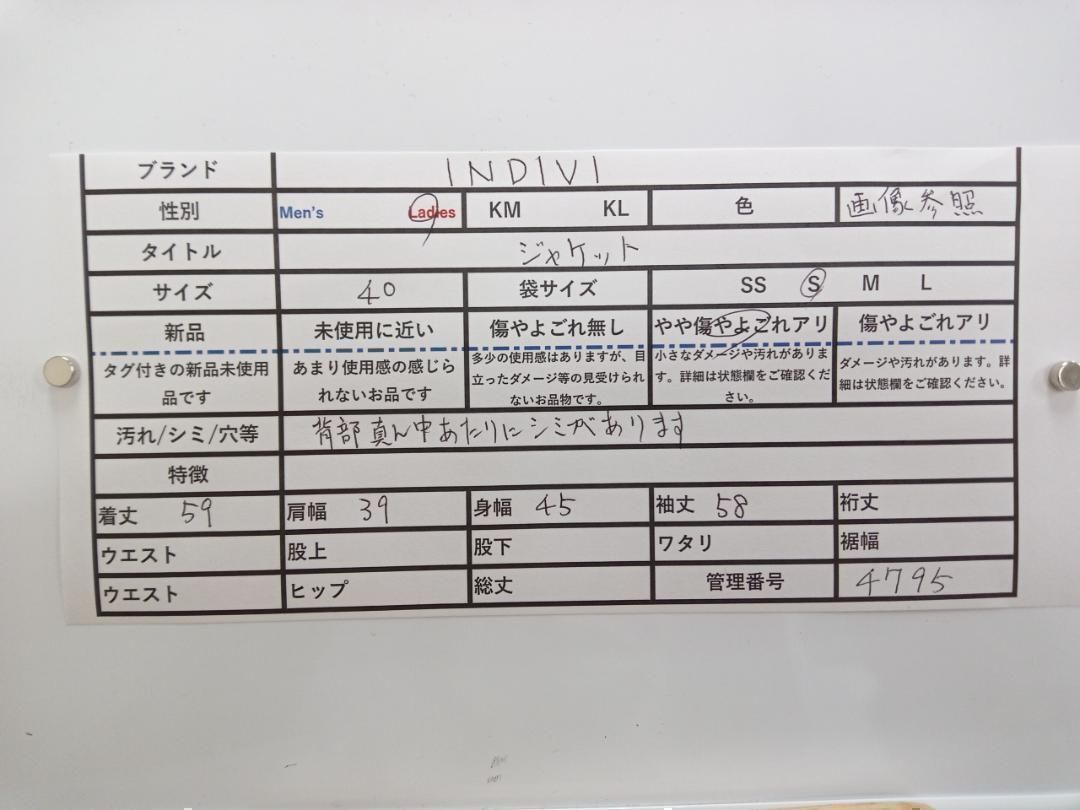 ブランド INDIVI
性別 Men's Ladies KM KL 色 画像参照
タイトル ジャケット
サイズ 40 袋サイズ SS S M L
新品 未使用に近い 傷やよごれ無し やや傷やよごれアリ 傷やよごれアリ
タグ付きの新品未使用品です あまり使用感の感じられないお品です 多少の使用感はありますが、目立ったダメージ等の見受けられないお品物です。 小さなダメージや汚れがあります。詳細は状態欄をご確認ください。 ダメージや汚れがあります。詳細は状態欄をご確認ください。
汚れ/シミ/穴等 背部真ん中あたりにシミがあります
特徴
着丈 59 肩幅 39 身幅 45 袖丈 58 裄丈
ウエスト 股上 股下 ワタリ 裾幅
ウエスト ヒップ 総丈 管理番号 4795